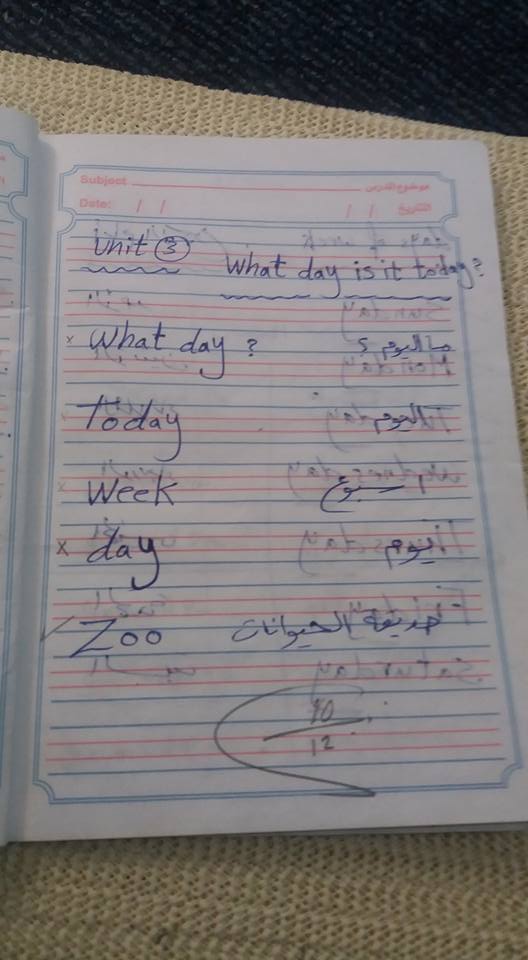 Subject موضوع الدرس
Date: / / / / التاريخ
Unit ③ What day is it today?
x What day ? ما اليوم ؟
Today اليوم
x Week سبوع
x day يوم
Zoo حديقة الحيوانات
10
12